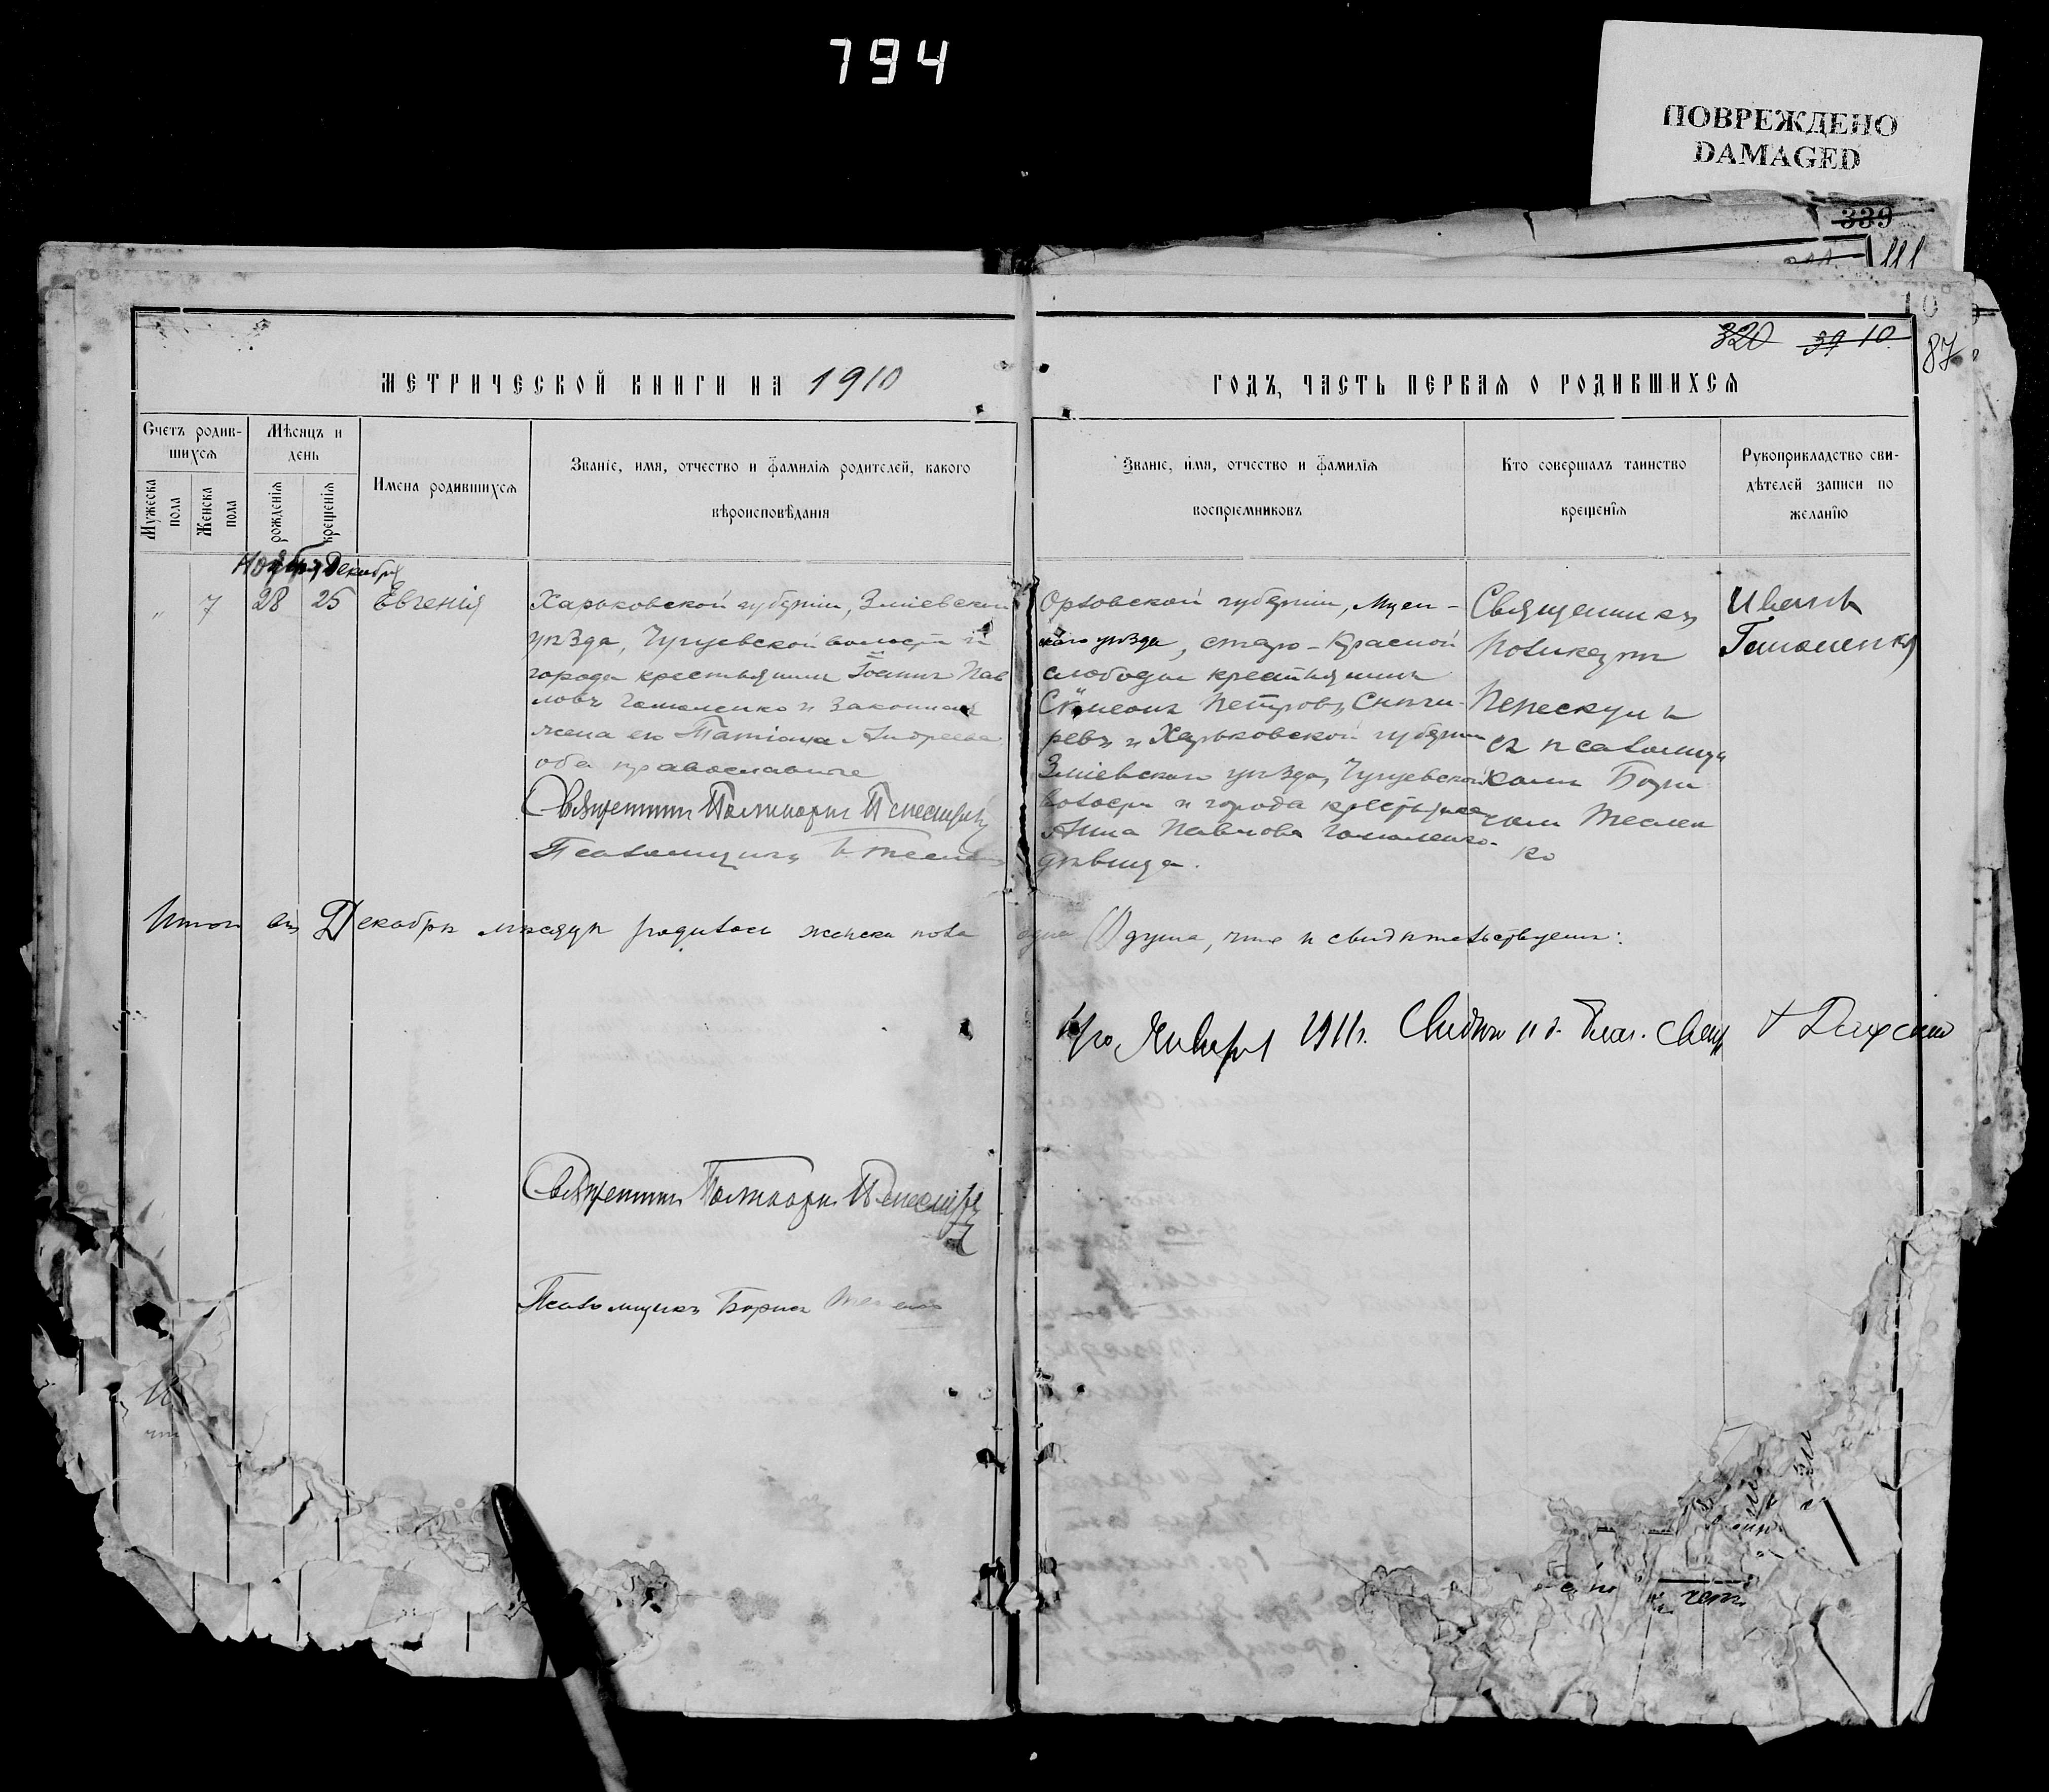 794
ПОВРЕЖДЕНО
DAMAGED
339
111
320 39 10
87
МЕТРИЧЕСКОЙ КНИГИ НА 1910
ГОДЪ, ЧАСТЬ ПЕРВАЯ О РОДИВШИХСЯ
Счетъ родив-
шихся
Мужеска
пола
Женска
пола
Мѣсяцъ и
день
рожденія
крещенія
Имена родившихся
Званіе, имя, отчество и фамилія родителей, какого
вѣроисповѣданія
Званіе, имя, отчество и фамилія
воспріемниковъ
Кто совершалъ таинство
крещенія
Рукоприкладство сви-
дѣтелей записи по
желанію
Ноября Декабря
" 7 28 25 Евгенія
Харьковской губерніи, Зміевскаго
уѣзда, Чугуевской волости и
города крестьянинъ Іоаннъ Пав
ловъ Гамаленко и законная
жена его Татіана Андреева,
оба православные
Священникъ Поликарпъ
Псаломщикъ Б
Орловской губерніи, Мцен-
скаго уѣзда, старо-Красной
слободы крестьянинъ
Сѵмеонъ Петровъ Снѣги-
ревъ и Харьковской губерніи
Зміевскаго уѣзда, Чугуевской
волости и города крестьянка
Анна Павлова Гамаленко-
дѣвица.
Священникъ
Поликарпъ
съ псаломщи
комъ Бори
сомъ Теслен
ко
Иванъ
Итого въ Декабрѣ мѣсяцѣ родилась женска пола одна (1) душа, что и свидѣтельствуемъ:
Января 1911г. Благ. свящ
Священникъ Поликарпъ
Псаломщикъ Борисъ